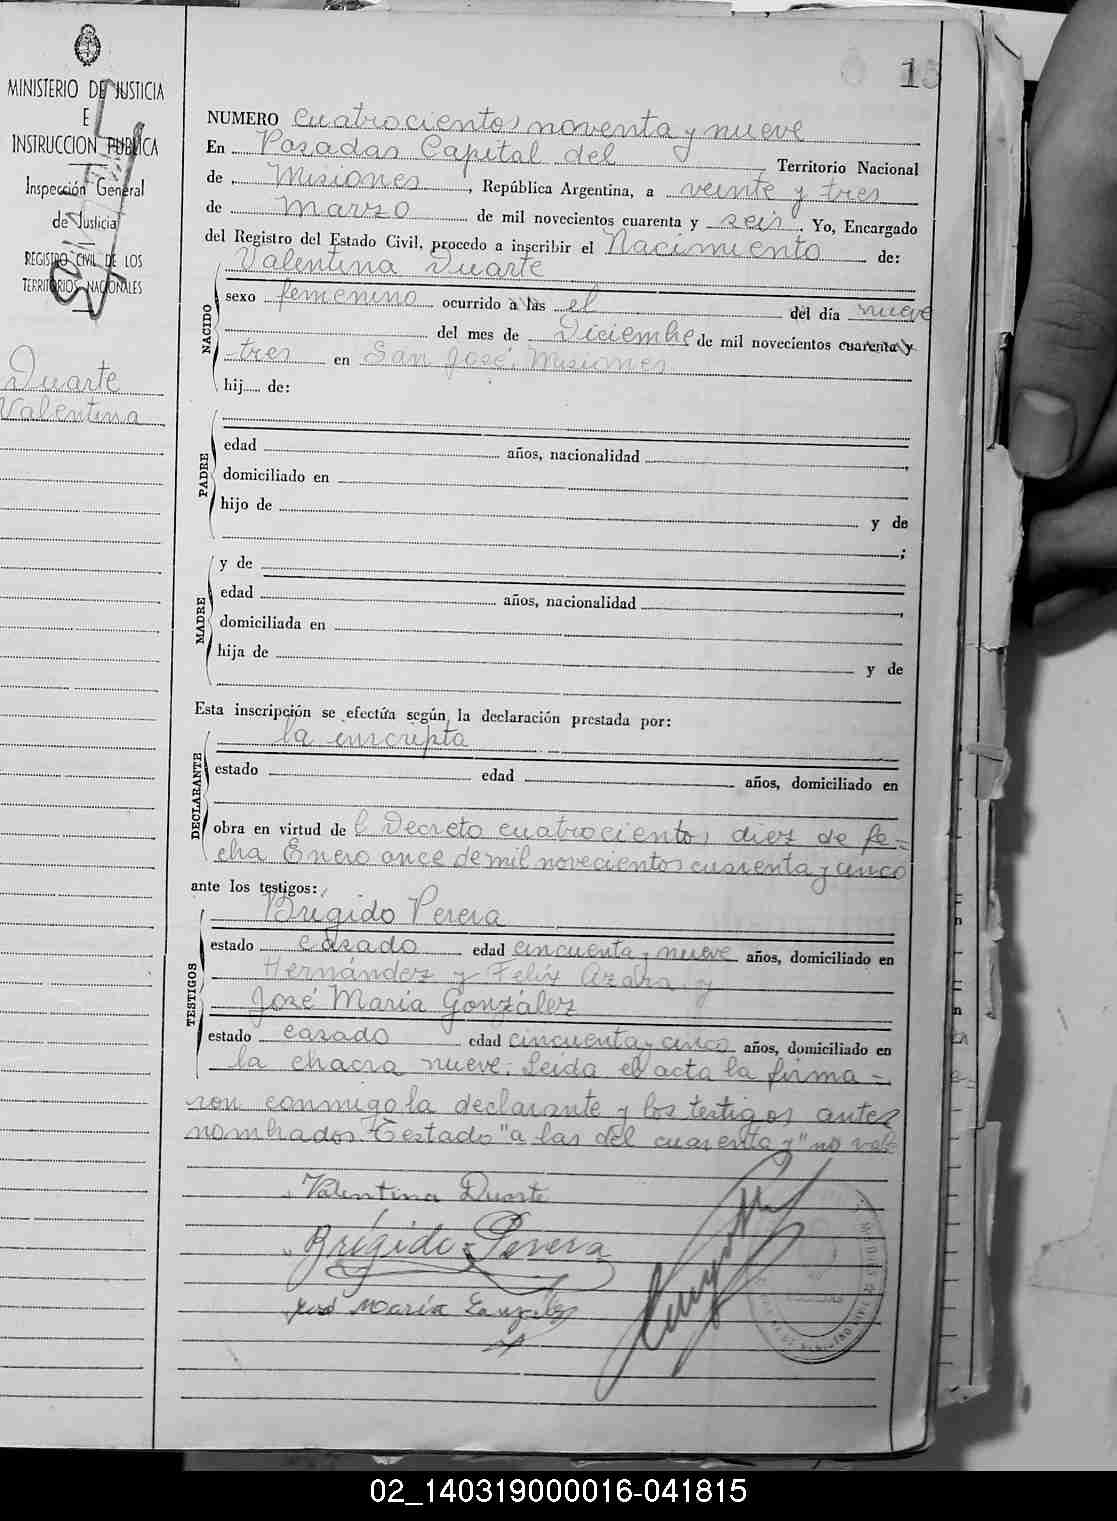 15
MINISTERIO DE JUSTICIA
E
INSTRUCCION PUBLICA
Inspección General
de Justicia
REGISTRO CIVIL DE LOS
TERRITORIOS NACIONALES
Duarte
Valentina
NUMERO cuatrocientos noventa y nueve
En Posadas Capital del Territorio Nacional
de Misiones, República Argentina, a veinte y tres
de Marzo de mil novecientos cuarenta y seis. Yo, Encargado
del Registro del Estado Civil, procedo a inscribir el Nacimiento de:
Valentina Duarte
NACIDO
sexo femenino ocurrido a las el del día nueve
del mes de Diciembre de mil novecientos cuarenta y
tres en San José, Misiones
hij de:
PADRE
edad años, nacionalidad
domiciliado en
hijo de y de
;
MADRE
y de
edad años, nacionalidad
domiciliada en
hija de y de
Esta inscripción se efectúa según la declaración prestada por:
la inscripta
DECLARANTE
estado edad años, domiciliado en
obra en virtud de l Decreto cuatrocientos diez de fe=
cha Enero once de mil novecientos cuarenta y cinco
ante los testigos:
Brígido Perera
TESTIGOS
estado casado edad cincuenta y nueve años, domiciliado en
Hernández y Felix Azara y
José María González
estado casado edad cincuenta y cinco años, domiciliado en
la chacra nueve. Leida el acta la firma=
ron conmigo la declarante y los testigos antes
nombrados. Testado "a las del cuarenta y" no vale
Valentina Duarte
Brígido Perera
José María Gonzalez
02_140319000016-041815